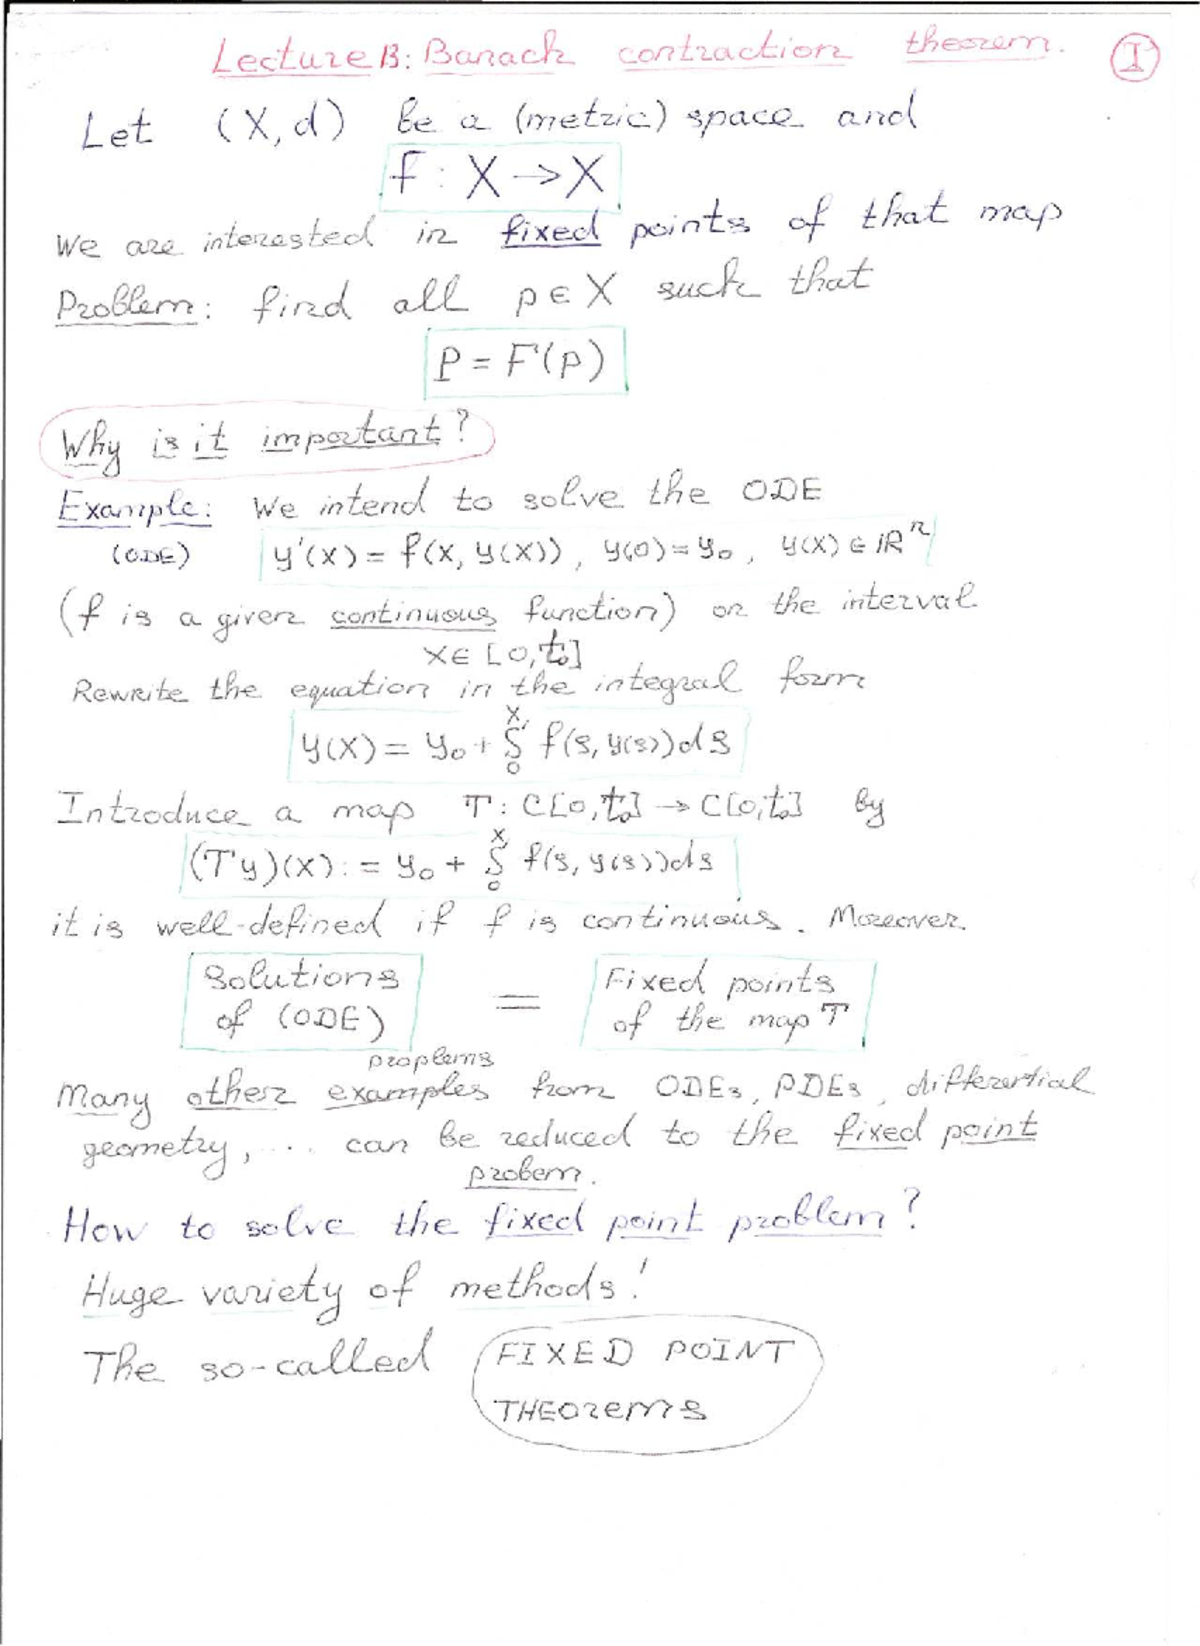 Lecture 13: Banach contraction theorem. I
Let (X, d) be a (metric) space and
F : X → X
We are interested in fixed points of that map
Problem: find all p ∈ X such that
P = F(p)
Why is it important?
Example: We intend to solve the ODE
(ODE) y'(x) = f(x, y(x)), y(0) = y₀, y(x) ∈ ℝⁿ
(f is a given continuous function) on the interval
x ∈ [0, t₀]
Rewrite the equation in the integral form
y(x) = y₀ + ∫₀ˣ f(s, y(s)) ds
Introduce a map T : C[0, t₀] → C[0, t₀] by
(Ty)(x) := y₀ + ∫₀ˣ f(s, y(s)) ds
it is well-defined if f is continuous. Moreover
Solutions of (ODE) = Fixed points of the map T
proplems
Many other examples from ODEs, PDEs, differential
geometry, ... can be reduced to the fixed point
probem.
How to solve the fixed point problem?
Huge variety of methods!
The so-called FIXED POINT
THEorems